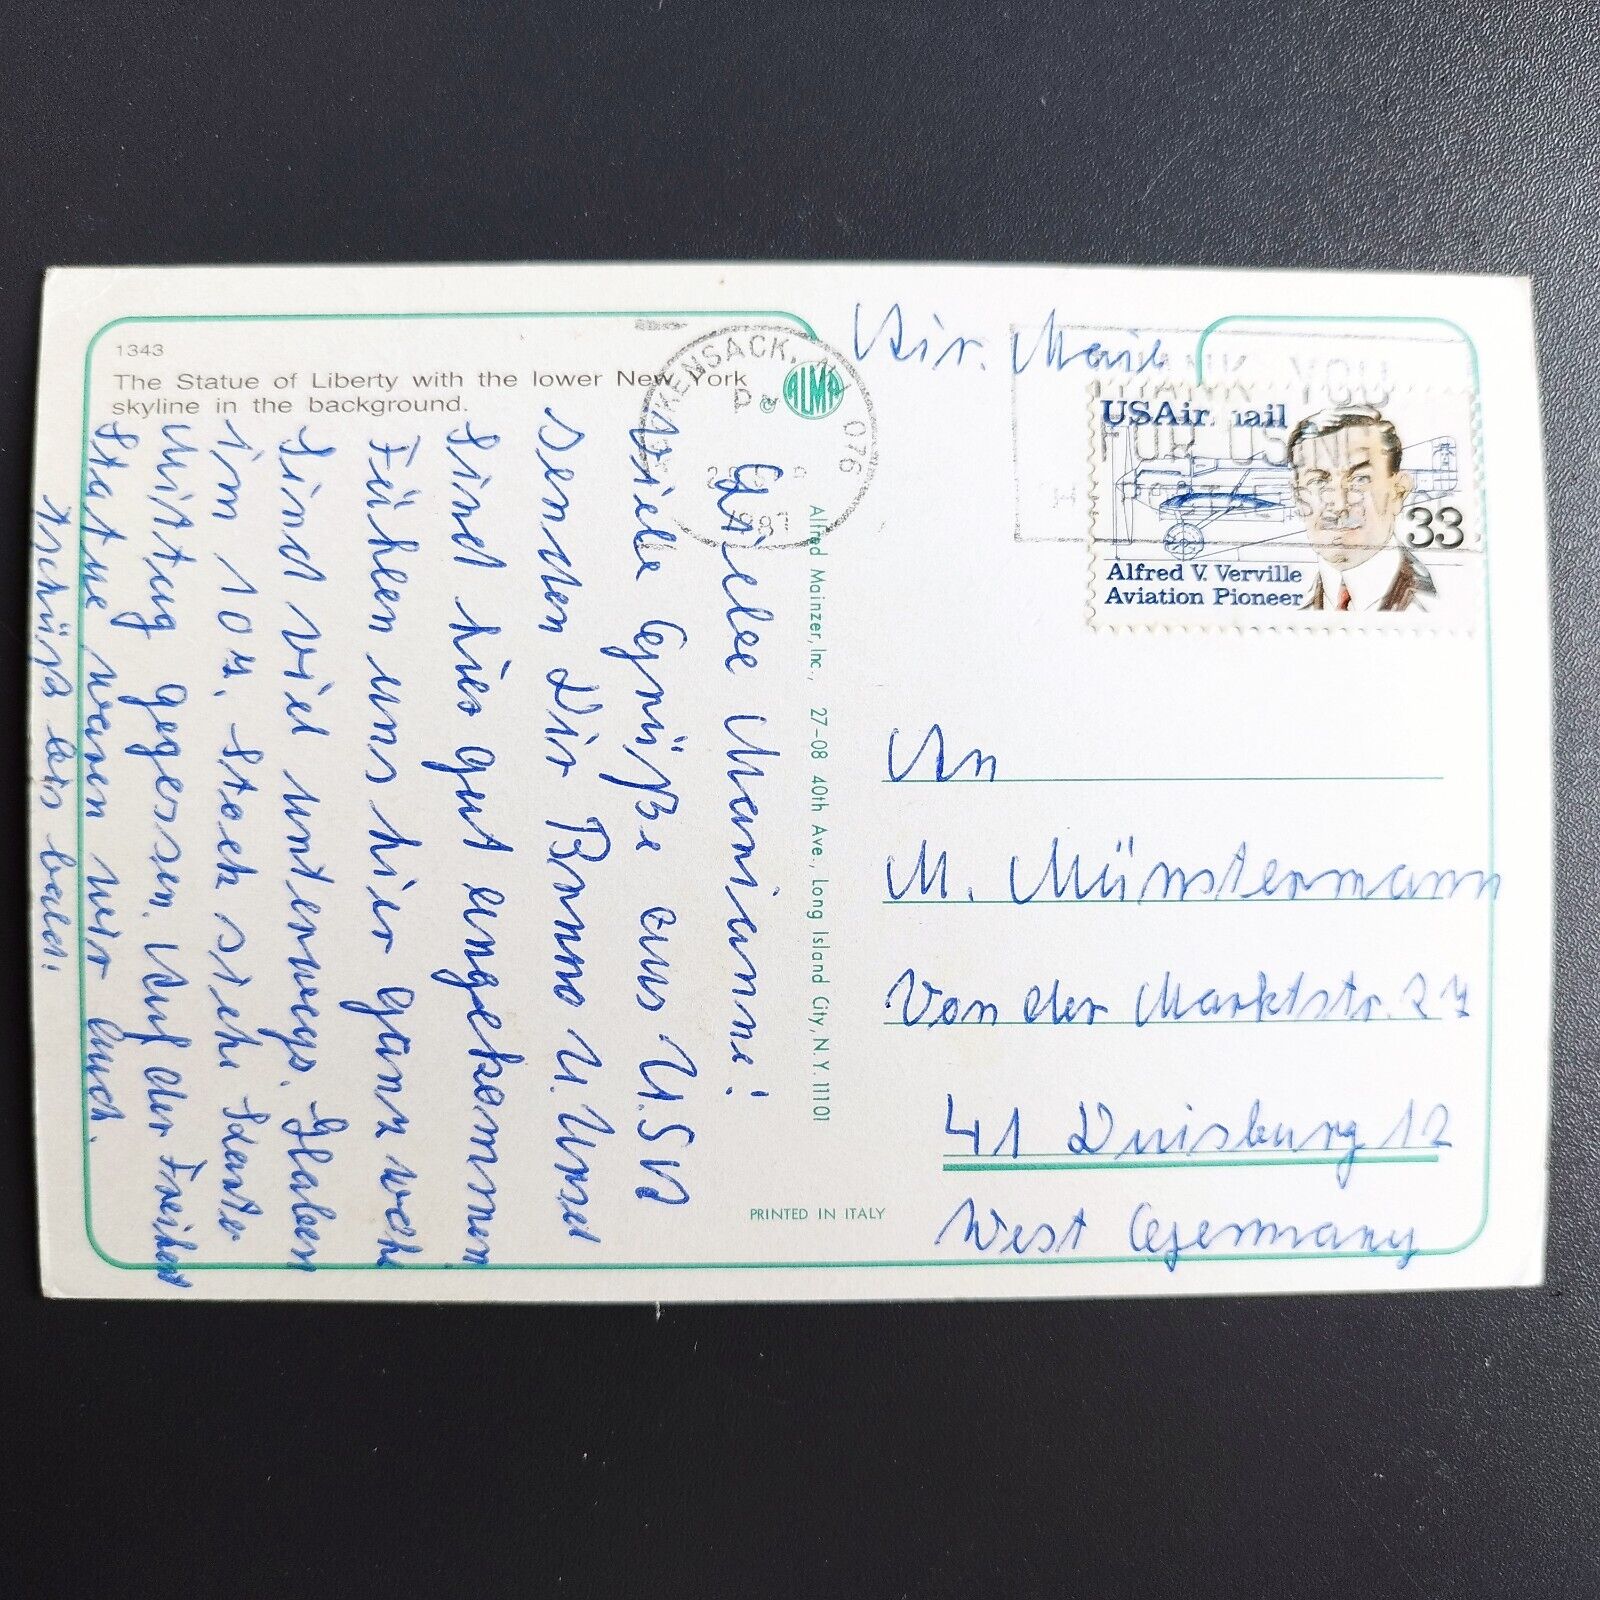 1343
The Statue of Liberty with the lower New York
skyline in the background.
ALMA
HACKENSACK, NJ 076
PM
1987
Air. Mail
THANK YOU
FOR USING
POSTAL SERV
USAirmail
33
Alfred V. Verville
Aviation Pioneer
Marianne!
Viele Grüße aus U.S.A
senden Dir Benno u. Ursel
Sind hier gut angekommen
Fühlen uns hier ganz wohl
Sind viel unterwegs. Haben
im 107. Stock siehe
Mittag gegessen. Auf der Freiheit
Statue waren wir auch.
Tschüß bis bald.
Alfred Mainzer, Inc., 27-08 40th Ave., Long Island City, N.Y. 11101
PRINTED IN ITALY
An
M. Münstermann
Von der Markstr. 27
41 Duisburg 12
West Germany